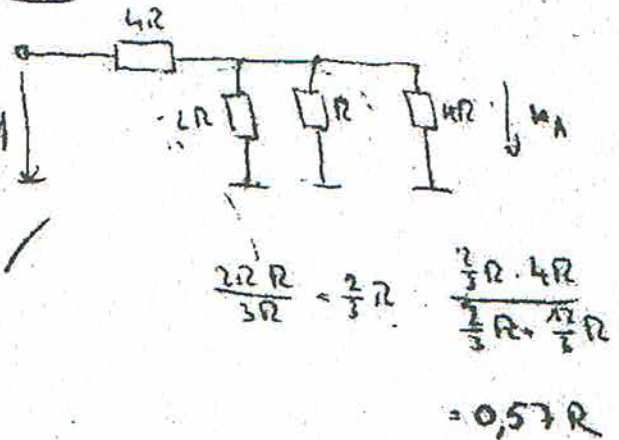 4R
2R R 4R u_A
\frac{2R R}{3R} = \frac{2}{3} R \frac{\frac{2}{3} R \cdot 4R}{\frac{2}{3} R + \frac{12}{3} R}
= 0,57 R